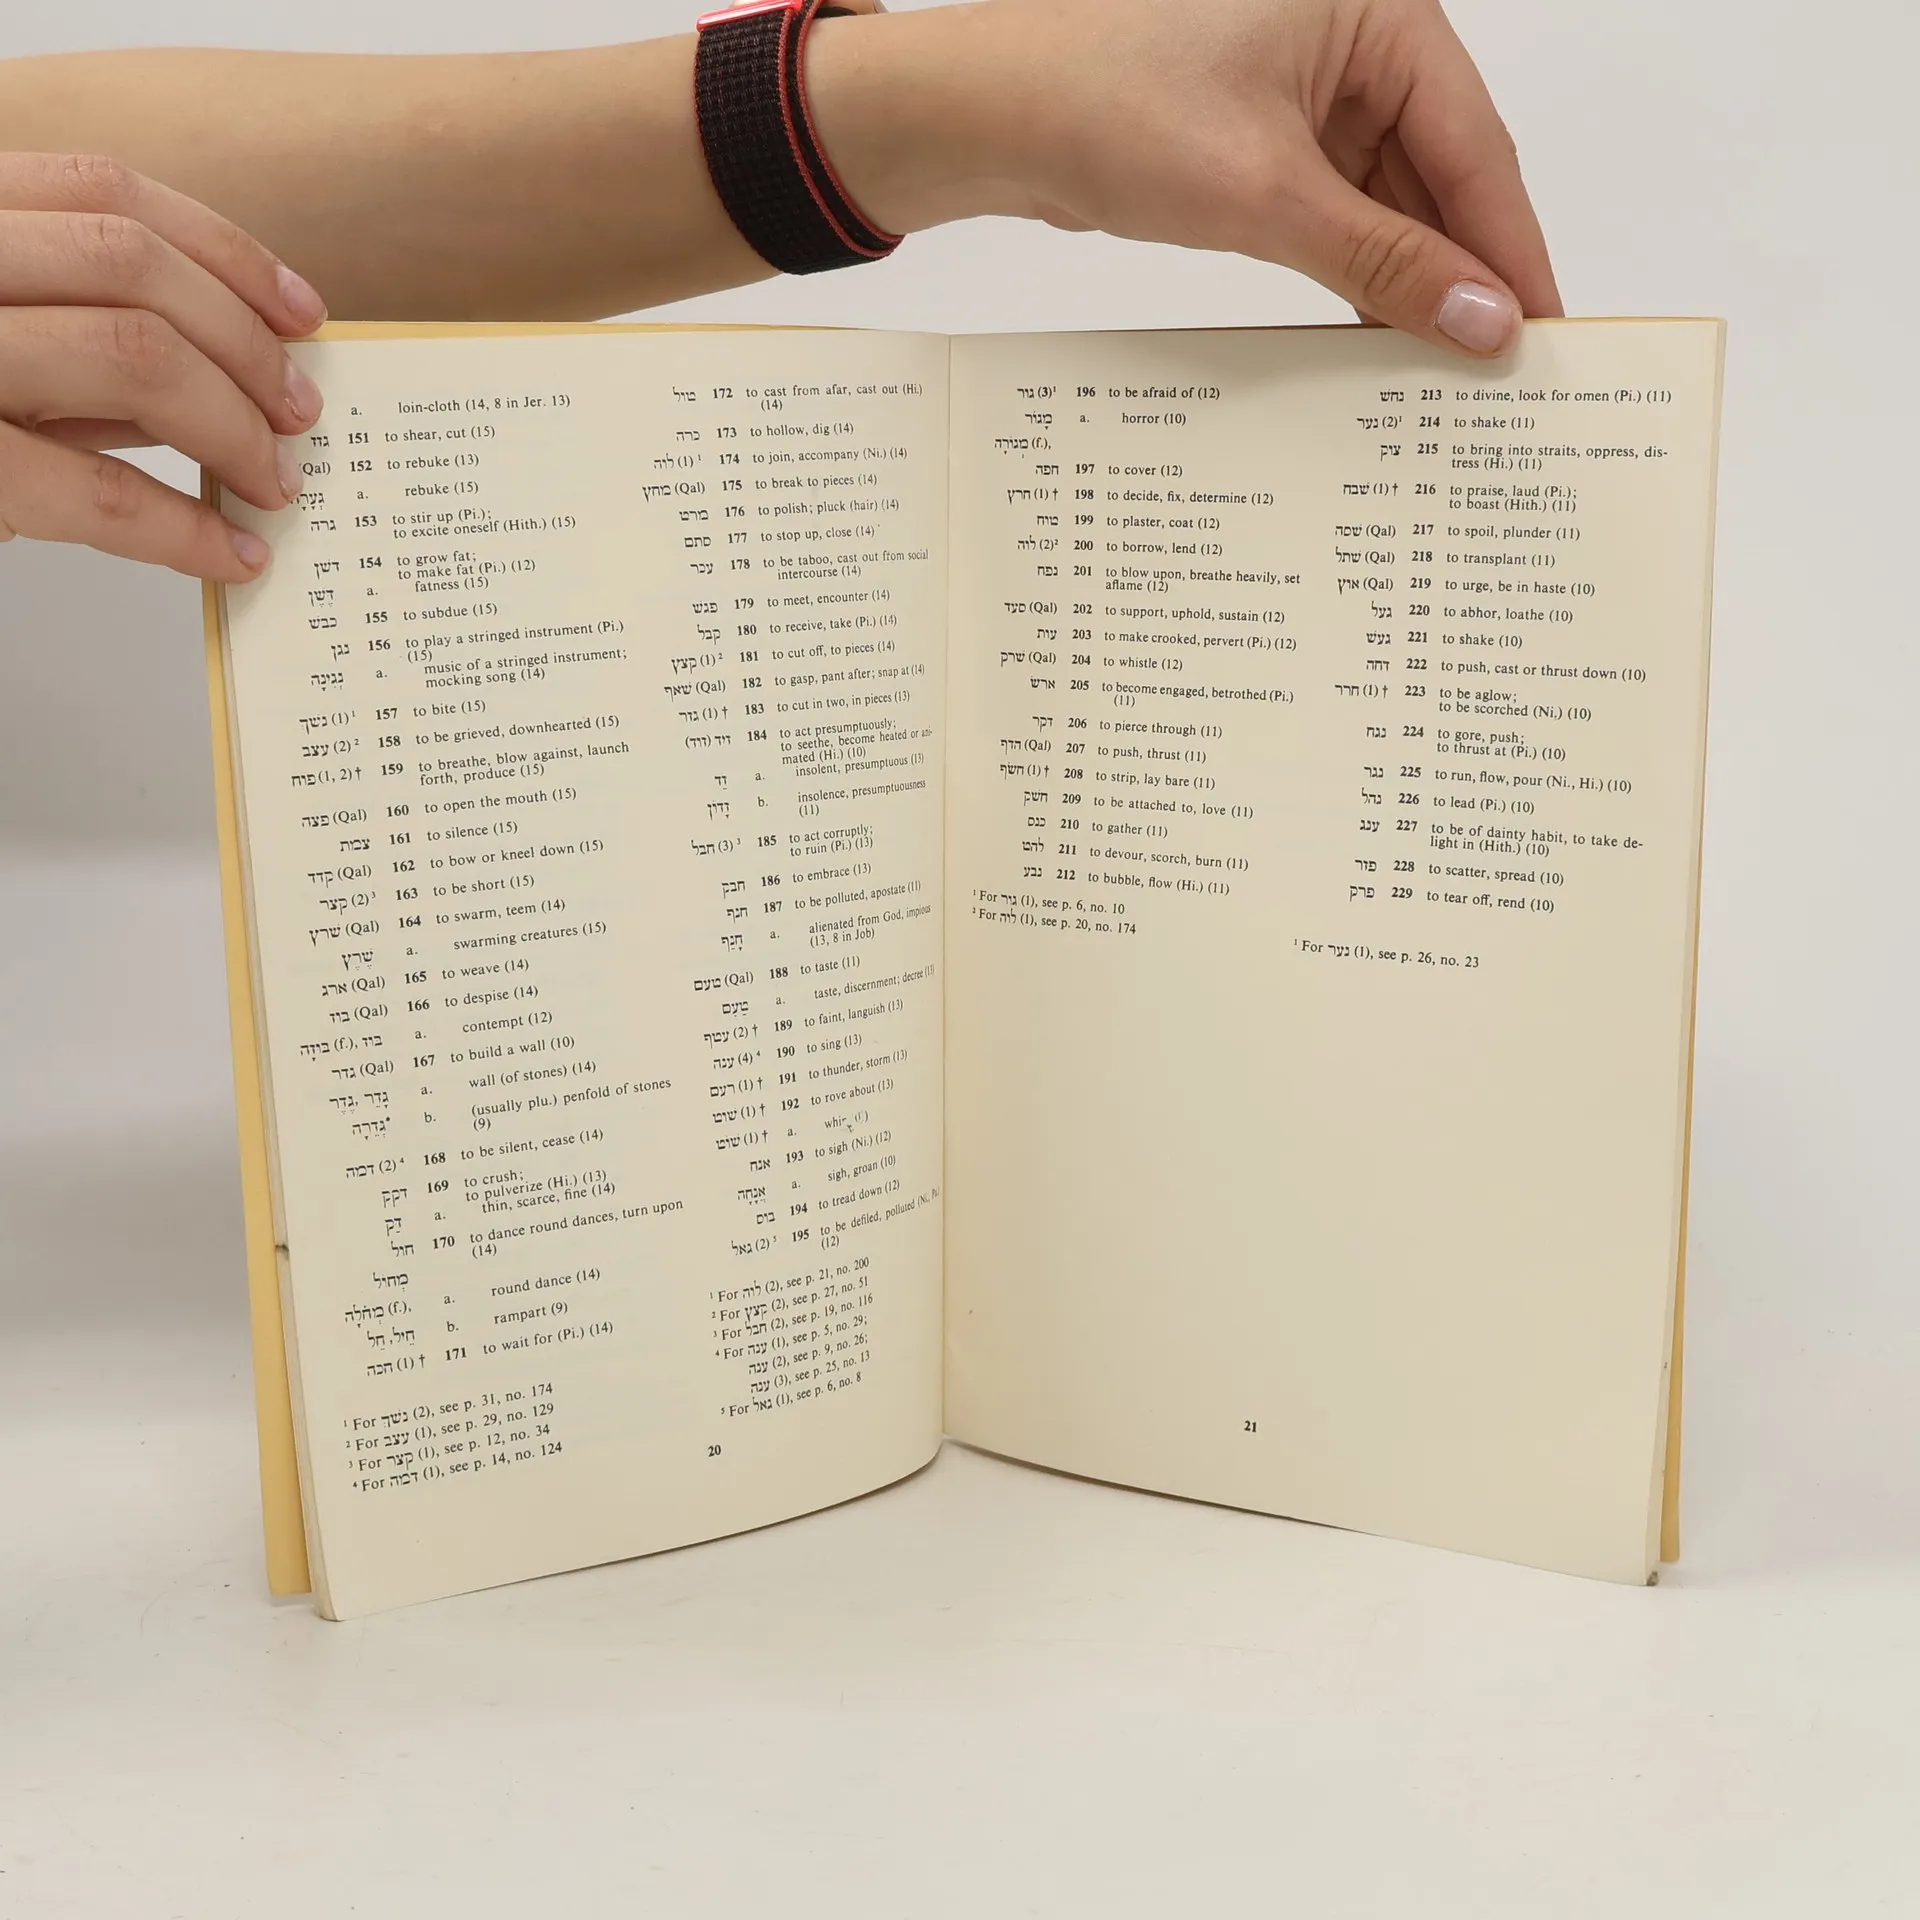 a. loin-cloth (14, 8 in Jer. 13)
גזז 151 to shear, cut (15)
(Qal) 152 to rebuke (13)
גְּעָרָה a. rebuke (15)
גרה 153 to stir up (Pi.);
to excite oneself (Hith.) (15)
דשׁן 154 to grow fat;
to make fat (Pi.) (12)
דֶּשֶׁן a. fatness (15)
כבשׁ 155 to subdue (15)
נגן 156 to play a stringed instrument (Pi.)
(15)
נְגִינָה a. music of a stringed instrument;
mocking song (14)
נשׁך (1)¹ 157 to bite (15)
עצב (2)² 158 to be grieved, downhearted (15)
פוח (1, 2)† 159 to breathe, blow against, launch
forth, produce (15)
פצה (Qal) 160 to open the mouth (15)
צמת 161 to silence (15)
קדד (Qal) 162 to bow or kneel down (15)
קצר (2)³ 163 to be short (15)
שׁרץ (Qal) 164 to swarm, teem (14)
שֶׁרֶץ a. swarming creatures (15)
ארג (Qal) 165 to weave (14)
בוז (Qal) 166 to despise (14)
בּוּזָה (f.), בּוּז a. contempt (12)
גדר (Qal) 167 to build a wall (10)
גָּדֵר, גֶּדֶר a. wall (of stones) (14)
גְּדֵרָה* b. (usually plu.) penfold of stones
(9)
דמה (2)⁴ 168 to be silent, cease (14)
דקק 169 to crush;
to pulverize (Hi.) (13)
דַּק a. thin, scarce, fine (14)
חול 170 to dance round dances, turn upon
(14)
מָחוֹל
מְחֹלָה (f.), a. round dance (14)
חֵיל, חֵל b. rampart (9)
חכה (1)† 171 to wait for (Pi.) (14)
¹ For נשׁך (2), see p. 31, no. 174
² For עצב (1), see p. 29, no. 129
³ For קצר (1), see p. 12, no. 34
⁴ For דמה (1), see p. 14, no. 124
טול 172 to cast from afar, cast out (Hi.)
(14)
כרה 173 to hollow, dig (14)
לוה (1)¹ 174 to join, accompany (Ni.) (14)
מחץ (Qal) 175 to break to pieces (14)
מרט 176 to polish; pluck (hair) (14)
סתם 177 to stop up, close (14)
עכר 178 to be taboo, cast out from social
intercourse (14)
פגשׁ 179 to meet, encounter (14)
קבל 180 to receive, take (Pi.) (14)
קצץ (1)² 181 to cut off, to pieces (14)
שׁאף (Qal) 182 to gasp, pant after; snap at (14)
גזר (1)† 183 to cut in two, in pieces (13)
זיד (זוד) 184 to act presumptuously;
to seethe, become heated or ani-
mated (Hi.) (10)
זֵד a. insolent, presumptuous (13)
זָדוֹן b. insolence, presumptuousness
(11)
חבל (3)³ 185 to act corruptly;
to ruin (Pi.) (13)
חבק 186 to embrace (13)
חנף 187 to be polluted, apostate (11)
חָנֵף a. alienated from God, impious
(13, 8 in Job)
טעם (Qal) 188 to taste (11)
טַעַם a. taste, discernment; decree (13)
עטף (2)† 189 to faint, languish (13)
ענה (4)⁴ 190 to sing (13)
רעם (1)† 191 to thunder, storm (13)
שׁוט (1)† 192 to rove about (13)
שׁוֹט (1)† a.
אנח 193 to sigh (Ni.) (12)
אֲנָחָה a. sigh, groan (10)
בוס 194 to tread down (12)
גאל (2)⁵ 195 to be defiled, polluted (Ni.,
(12)
¹ For לוה (2), see p. 21, no. 200
² For קצץ (2), see p. 27, no. 51
³ For חבל (2), see p. 19, no. 116
⁴ For ענה (1), see p. 5, no. 29;
ענה (2), see p. 9, no. 26;
ענה (3), see p. 25, no. 13
⁵ For גאל (1), see p. 6, no. 8
20
גור (3)¹ 196 to be afraid of (12)
מָגוֹר a. horror (10)
מְגוֹרָה (f.),
חפה 197 to cover (12)
חרץ (1)† 198 to decide, fix, determine (12)
טוח 199 to plaster, coat (12)
לוה (2)² 200 to borrow, lend (12)
נפח 201 to blow upon, breathe heavily, set
aflame (12)
סעד (Qal) 202 to support, uphold, sustain (12)
עות 203 to make crooked, pervert (Pi.) (12)
שׁרק (Qal) 204 to whistle (12)
ארשׂ 205 to become engaged, betrothed (Pi.)
(11)
דקר 206 to pierce through (11)
הדף (Qal) 207 to push, thrust (11)
חשׂף (1)† 208 to strip, lay bare (11)
חשׁק 209 to be attached to, love (11)
כנס 210 to gather (11)
להט 211 to devour, scorch, burn (11)
נבע 212 to bubble, flow (Hi.) (11)
¹ For גור (1), see p. 6, no. 10
² For לוה (1), see p. 20, no. 174
נחשׁ 213 to divine, look for omen (Pi.) (11)
נער (2)¹ 214 to shake (11)
צוק 215 to bring into straits, oppress, dis-
tress (Hi.) (11)
שׁבח (1)† 216 to praise, laud (Pi.);
to boast (Hith.) (11)
שׁסה (Qal) 217 to spoil, plunder (11)
שׁתל (Qal) 218 to transplant (11)
אוץ (Qal) 219 to urge, be in haste (10)
געל 220 to abhor, loathe (10)
געשׁ 221 to shake (10)
דחה 222 to push, cast or thrust down (10)
חרר (1)† 223 to be aglow;
to be scorched (Ni,) (10)
נגח 224 to gore, push;
to thrust at (Pi.) (10)
נגר 225 to run, flow, pour (Ni., Hi.) (10)
נהל 226 to lead (Pi.) (10)
ענג 227 to be of dainty habit, to take de-
light in (Hith.) (10)
פזר 228 to scatter, spread (10)
פרק 229 to tear off, rend (10)
¹ For נער (1), see p. 26, no. 23
21